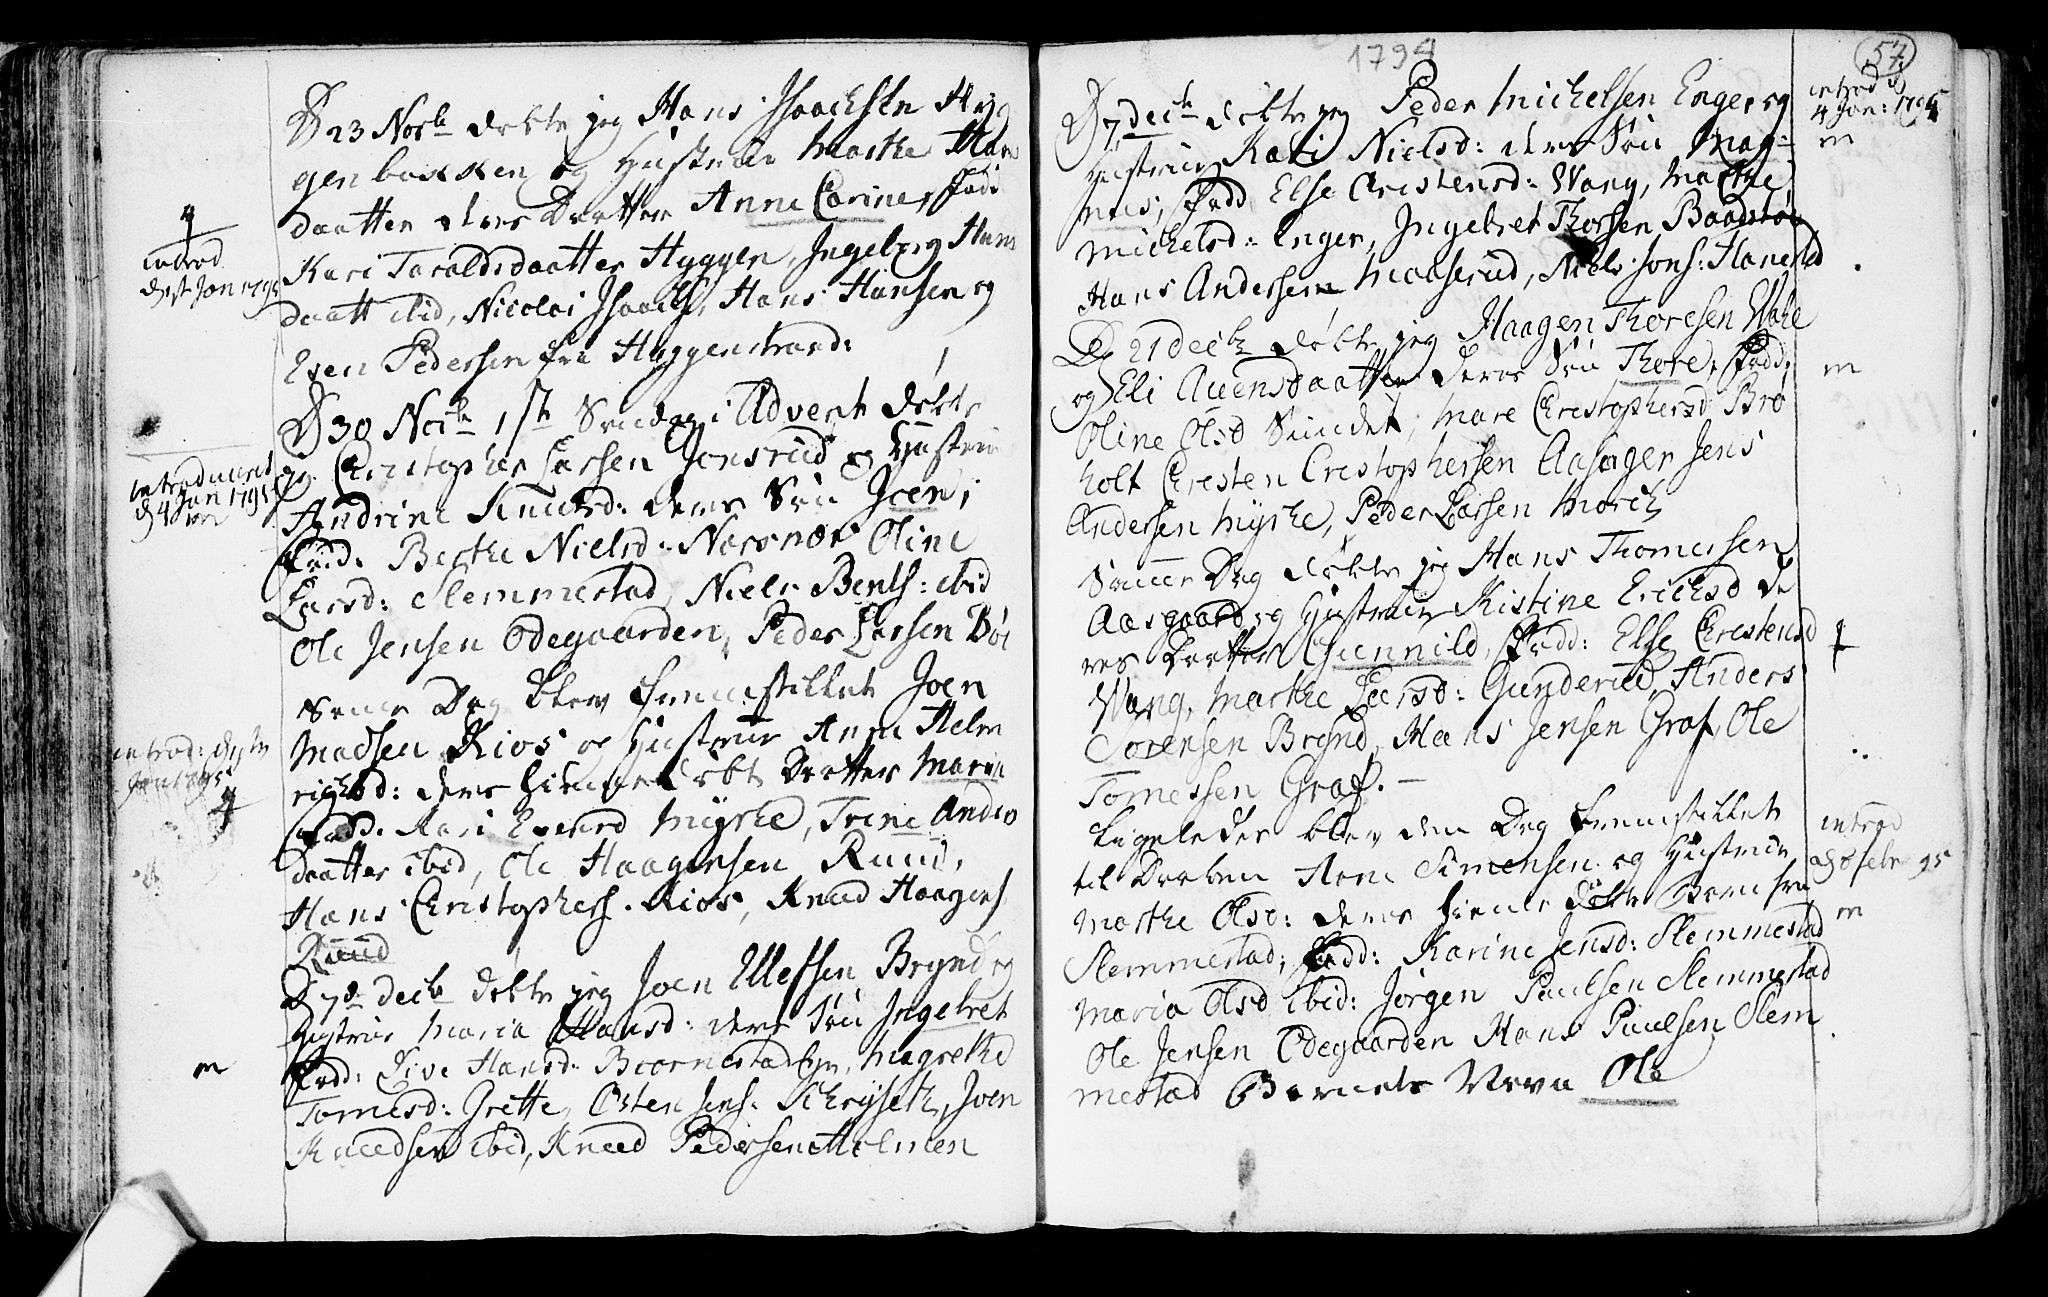 D 23 Novb døbte jeg Hans Isaachsen Hyg
genbakken og Hustrue Marthe Hans
daatter deres Daatter Anne Carine, Fadd
Kari Taraldsdaatter Hyggen, Ingeborg Hans
daatt ibid, Nicolai Isaachs, Hans Hansen og
Even Pedersen fra Hyggenstrand:
introd
1795
D 30 Novb 1ste Søndag i Advent døbte
jeg Christopher Larsen Jonsrud og Hustrue
Andrine Knudsd: deres Søn Joen;
Fadd: Berthe Nielsd: Narsnæs Oline
Larsd: Slemmestad, Niels Bents: ibid
Ole Jensen Ødegaarden, Peder Larsen Bøe
introduceret
d 4 Jan 1795
m
Samme Dag blev fremstillet Joen
Madsen Kios og Hustrue Anne Helm
richsd: deres hiemedøbt Daatter Maria
Fadd. Kari Evensd Myhre, Trine Andrs
daatter ibid, Ole Haagensen Ruud,
Hans Christophers. Kios, Knud Haagens
Ruud
introd:
D 7de Decb døbte jeg Joen Ellefsen Brynd og
Hustrue Maria Hansd: deres Søn Ingebret
Fadd: Live Hansd: Biørnestad, Magrethe
Tomesd: Grette, Osten Jens: Schryseth, Joen
Knudsen ibid, Knud Pedersen Holmen
m
1794
57
D 7 Decb døbte jeg Peder Michelsen Enger og
Hustrue Kari Nielsd: deres Søn Mag-
nus; Fadd Else Christensd: Wang, Marthe
Michelsd: Enger, Ingebret Thorsen Baadstøe
Hans Andersen Maaserud, Niels Jons: Hanestad
introd d
4 Jan: 1795
m
D 21 Decb døbte jeg Haagen Thoresen
og Eli Auensdaatter deres Søn Thore, Fadd;
Oline Olsd Sundet, Mare Christophersd Brø
holt Christen Christophersen Aasager Jens
Andersen Myhre, Peder Larsen Morch
m
Samme Dag døbte jeg Hans Thomessen
Aasgaard og Hustrue Kistine Erichsd de
res Daatter Gunnild, Fadd: Else Christensd
Wang, Marthe Larsd: Gunderud Anders
Sørensen Brynd, Hans Jensen Graf, Ole
Tomessen Graf. –
Ligeledes blev den Dag fremstillet
til Daaben Hans Simensen og Hustrue
Marthe Olsd: deres hieme døbte Barn fra
Slemmestad; Fadd: Karine Jensd: Slemmestad
Maria Olsd ibid: Jørgen Paulsen Slemmestad
Ole Jensen Ødegaarden Hans Paulsen Slem
mestad Barnets Navn Ole
introd
d 8 Febr 95
m